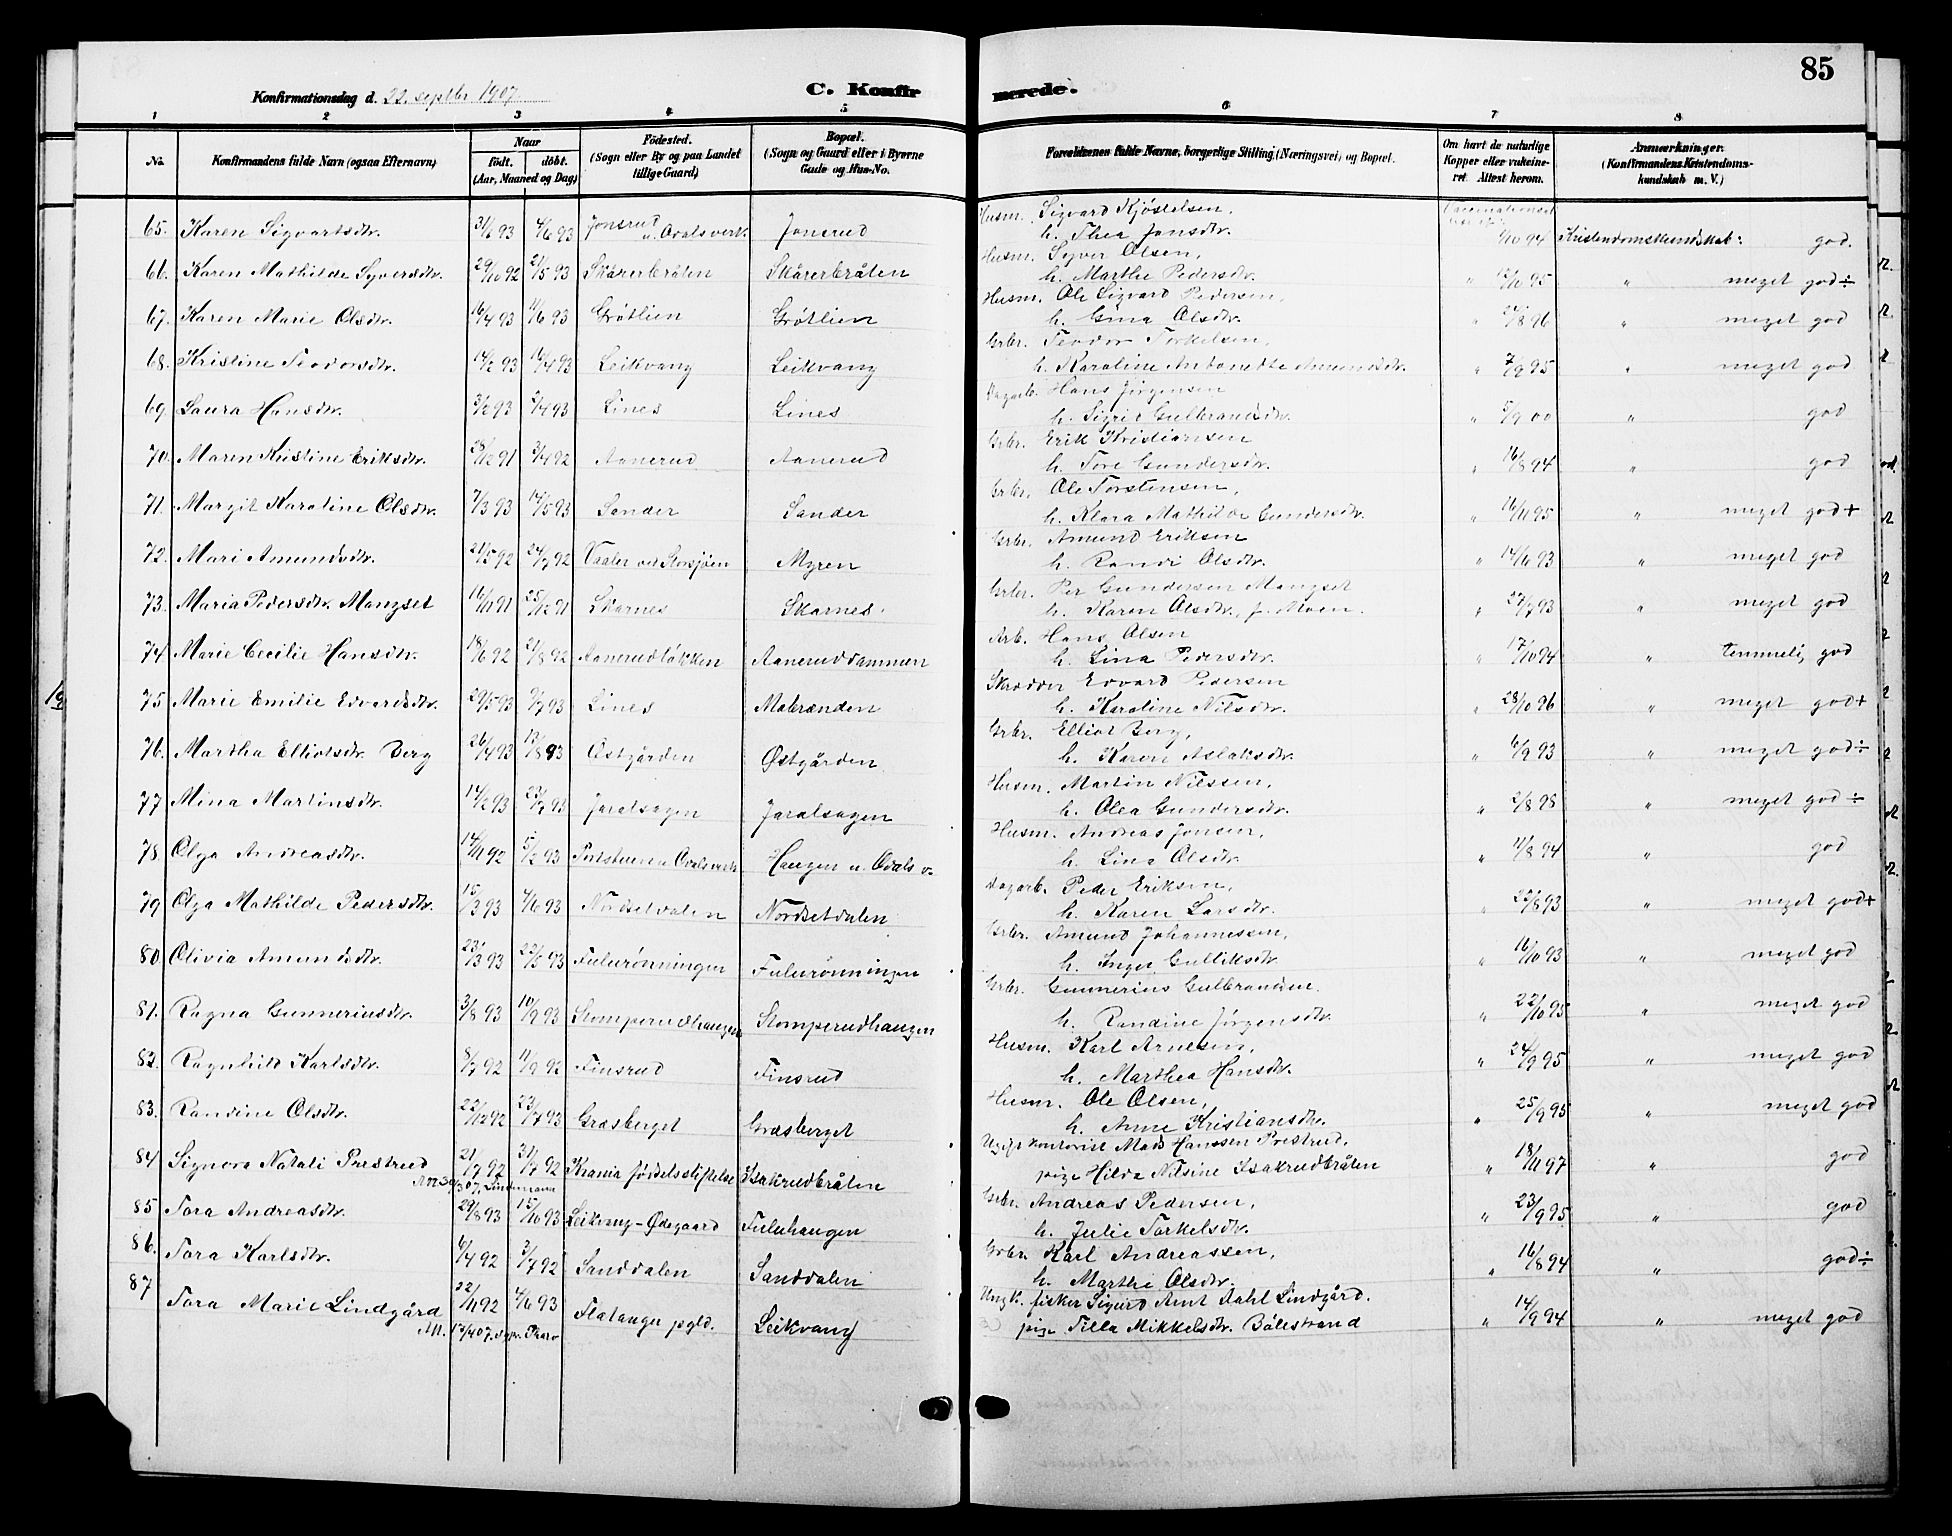 85
Konfirmationsdag d. 22. septbr 1907.
C. Konfirmerede.
1 2 3 4 5 6 7 8
No. Konfirmandens fulde Navn (ogsaa Efternavn) Naar födt. döbt. (Aar, Maaned og Dag) Födested. (Sogn eller By og paa Landet tillige Gaard) Bopæl. (Sogn og Gaard eller i Byerne Gade og Hus-No. Forældrenes fulde Navne, borgerlige Stilling (Næringsvei) og Bopæl. Om havt de naturlige Kopper eller vakcineret. Attest herom. Anmærkninger. (Konfirmandens Kristendomskundskab m. V.)
65. Karen Sigvartsdtr. 3/6 93 Jonsrud u. Odalsverk. Jonsrud Husm. Sigvard Kjöstelsen, h. Thea Jonsdtr. Kristendomskundskab: god.
66. Karen Mathilde Syversdtr. 29/10 92 21/5 93 Skårerbråten Skårerbråten Husm. Syver Olsen, h. Marthe Pedersdtr. " 12/10 95 " meget god÷
67. Karen Marie Olsdtr. 16/4 93 4/6 93 Grötlien Grötlien Husm. Ole Sigvard Pedersen, h. Gina Olsdtr. " 24/8 96 " meget god
68. Kristine Teodorsdtr. 14/2 93 16/4 93 Leikvang Leikvang Grbr. Teodor Torkelsen, h. Karoline Antonette Amundsdtr. " 7/9 95 " meget god
69. Laura Hansdtr. 3/2 93 2/4 93 Lines Lines Dagarb. Hans Jörgensen h. Sigrid Gulbrandsdtr. " 5/9 00 " god
70. Maren Kristine Eriksdtr. 28/12 91 3/4 92 Aanerud Aanerud Grbr. Erik Kristiansen h. Tore Gundersdtr. " 16/8 94 " god
71. Margit Karoline Olsdtr. 7/3 93 14/5 93 Sander Sander Grbr. Ole Torstensen, h. Klara Mathilde Gundersdtr. " 16/11 95 " meget god+
72. Mari Amundsdtr. 21/5 92 24/7 92 Vaaler ved Storsjöen Myren Grbr. Amund Eriksen h. Randi Olsdtr. " 14/11 93 " meget god
73. Maria Pedersdtr. Mangset 16/11 91 25/12 91 Skarnes Skarnes. Grbr. Per Gundersen Mangset h. Karen Olsdtr., f. Moen. " 27/7 93 " meget god
74. Marie Cecilie Hansdtr. 18/6 92 21/8 92 Aanerudløkken Aaneruddammen Arb. Hans Olsen h. Lina Pedersdtr. " 17/10 94 " temmeli, god
75 Marie Emilie Edvardsdtr. 29/5 93 9/7 93 Lines Mabrænden Skrædder Edvard Pedersen h. Karoline Nilsdtr. " 28/10 96 " meget god+
76. Martha Elliotsdtr Berg 26/4 93 13/8 93 Østgården Østgården Grbr. Elliot Berg, h. Karen Aslaksdtr. " 6/9 93 " meget god÷
77 Mina Martinsdtr. 14/2 93 23/7 93 Jaralsagen Jaralsagen Husm. Martin Nilssen, h. Olea Gundersdtr. " 2/8 98 " meget god÷
78. Olga Andreasdtr. 14/11 92 5/2 93 Haugen u. Odals v. Husm. Andreas Jonsen, h. Lina Olsdtr. " 11/8 94 " god
79 Olga Mathilde Pedersdtr. 15/3 93 4/6 93 Nordsetdalen Nordsetdalen Dagarb. Peder Eriksen, h. Karen Larsdtr. " 22/8 93 " meget god+
80 Olivia Amundsdtr. 23/3 93 22/5 93 Fulurönningen Fulurönningen Grbr. Amund Johannessen, h. Inger Gulliksdtr. " 16/10 93 " meget god
81. Ragna Gunneriusdtr. 3/8 93 10/9 93 Stomperudhaugen Stomperudhaugen Grbr. Gunnerius Gulbrandsen. h. Randine Jörgensdtr. " 22/10 95 " meget god
82. Ragnhild Karlsdtr. 8/7 92 11/9 92 Finsrud Finsrud Husm. Karl Arnesen, h. Marthea Hansdtr. " 24/9 95 " meget god
83. Randine Olsdtr. 22/12 92 23/7 93 Græsberget Græsberget Husm. Ole Olsen, h. Anne Kristiansdtr. " 25/9 95 " meget god
84 Signora Natali Prestrud 21/7 92 31/7 92 Krania födselsstiftelse Isakrudbråten Ugift kontorist Mads Hanssen Prestrud, pige Hilda Nilsine Isakrudbråten " 18/11 97 " god
Lindemann
85 Tora Andreasdtr. 29/8 93 15/10 93 Leikvang-Ødegaard Fuluhaugen Grbr. Andreas Pedersen, h. Julie Torkelsdtr. " 23/9 95 " god
86. Tora Karlsdtr. 6/4 92 3/7 92 Sanddalen Sanddalen Grbr. Karl Andreassen, h. Marthe Olsdtr. " 16/8 94 " god÷
87 Tora Marie Lindgård 22/11 92 4/6 93 Flatanger pgld. Leikvang Ungk. fisker Sigurd Arnt Dahl Lindgård. pige Tilla Mikkelsdtr. Bölestrand " 14/9 94 " meget god